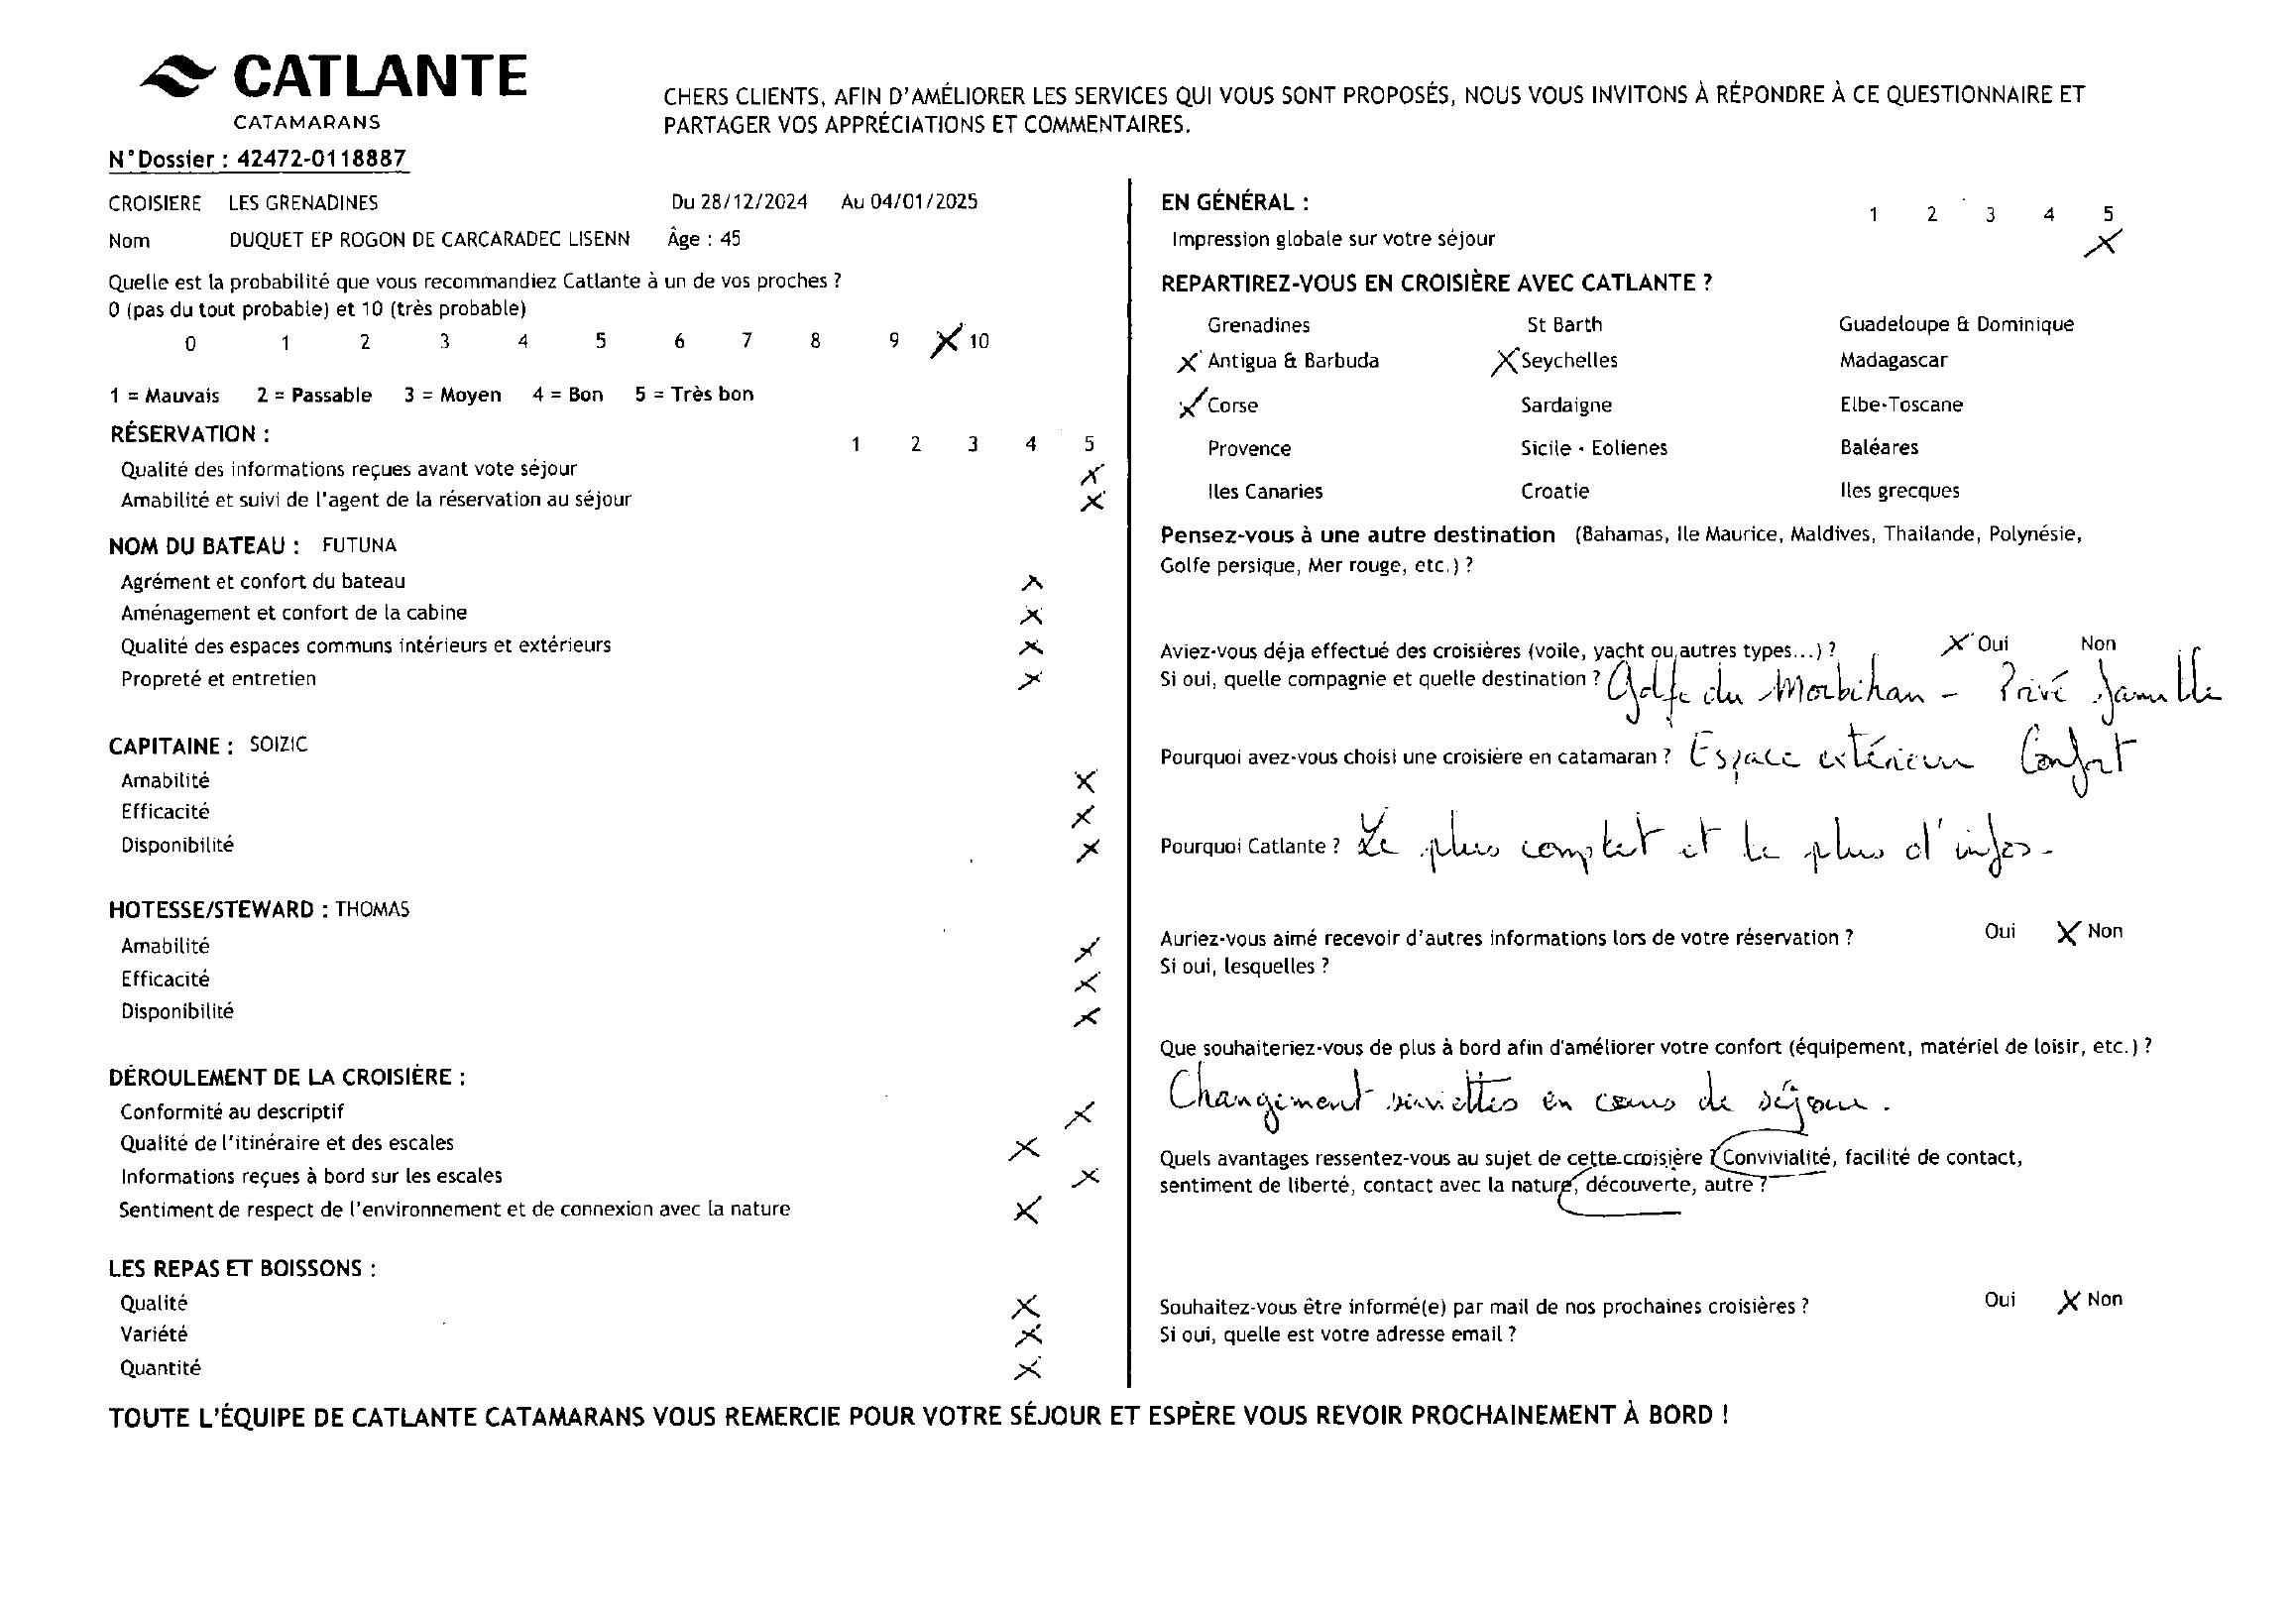 CATLANTE
CATAMARANS
CHERS CLIENTS, AFIN D'AMÉLIORER LES SERVICES QUI VOUS SONT PROPOSÉS, NOUS VOUS INVITONS À RÉPONDRE À CE QUESTIONNAIRE ET
PARTAGER VOS APPRÉCIATIONS ET COMMENTAIRES.
N°Dossier : 42472-0118887
CROISIERE LES GRENADINES Du 28/12/2024 Au 04/01/2025
Nom DUQUET EP ROGON DE CARCARADEC LISENN Âge : 45
Quelle est la probabilité que vous recommandiez Catlante à un de vos proches ?
0 (pas du tout probable) et 10 (très probable)
0 1 2 3 4 5 6 7 8 9 X 10
1 = Mauvais 2 = Passable 3 = Moyen 4 = Bon 5 = Très bon
RÉSERVATION : 1 2 3 4 5
Qualité des informations reçues avant vote séjour X
Amabilité et suivi de l'agent de la réservation au séjour X
NOM DU BATEAU : FUTUNA
Agrément et confort du bateau X
Aménagement et confort de la cabine X
Qualité des espaces communs intérieurs et extérieurs X
Propreté et entretien X
CAPITAINE : SOIZIC
Amabilité X
Efficacité X
Disponibilité X
HOTESSE/STEWARD : THOMAS
Amabilité X
Efficacité X
Disponibilité X
DÉROULEMENT DE LA CROISIÈRE :
Conformité au descriptif X
Qualité de l'itinéraire et des escales X
Informations reçues à bord sur les escales X
Sentiment de respect de l'environnement et de connexion avec la nature X
LES REPAS ET BOISSONS :
Qualité X
Variété X
Quantité X
EN GÉNÉRAL : 1 2 3 4 5
Impression globale sur votre séjour X
REPARTIREZ-VOUS EN CROISIÈRE AVEC CATLANTE ?
Grenadines St Barth Guadeloupe & Dominique
X Antigua & Barbuda X Seychelles Madagascar
X Corse Sardaigne Elbe-Toscane
Provence Sicile - Eolienes Baléares
Iles Canaries Croatie Iles grecques
Pensez-vous à une autre destination (Bahamas, Ile Maurice, Maldives, Thailande, Polynésie,
Golfe persique, Mer rouge, etc.) ?
Aviez-vous déja effectué des croisières (voile, yacht ou autres types...) ? X Oui Non
Si oui, quelle compagnie et quelle destination ? Golfe du Morbihan - Privé famille
Pourquoi avez-vous choisi une croisière en catamaran ? Espace extérieur Confort
Pourquoi Catlante ? Le plus complet et le plus d'infos -
Auriez-vous aimé recevoir d'autres informations lors de votre réservation ? Oui X Non
Si oui, lesquelles ?
Que souhaiteriez-vous de plus à bord afin d'améliorer votre confort (équipement, matériel de loisir, etc.) ?
Changement serviettes en cours de séjour.
Quels avantages ressentez-vous au sujet de cette croisière ? Convivialité, facilité de contact,
sentiment de liberté, contact avec la nature, découverte, autre ?
Souhaitez-vous être informé(e) par mail de nos prochaines croisières ? Oui X Non
Si oui, quelle est votre adresse email ?
TOUTE L'ÉQUIPE DE CATLANTE CATAMARANS VOUS REMERCIE POUR VOTRE SÉJOUR ET ESPÈRE VOUS REVOIR PROCHAINEMENT À BORD !